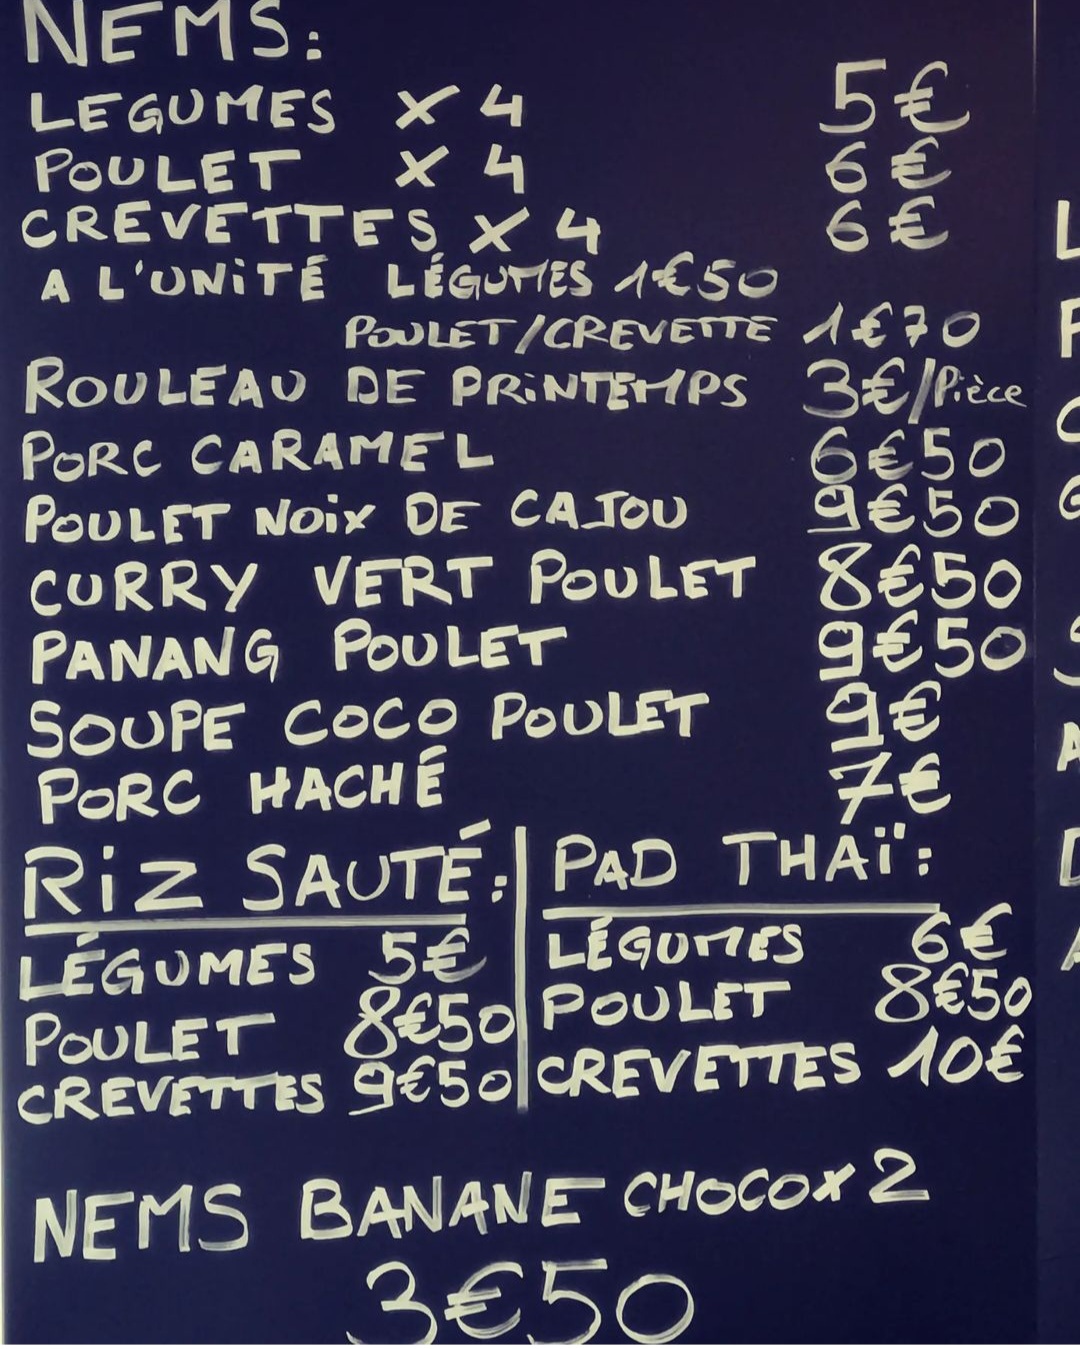 NEMS:
LEGUMES x 4 5€
POULET x 4 6€
CREVETTES x 4 6€
A L'UNITÉ LÉGUMES 1€50
POULET/CREVETTE 1€70
ROULEAU DE PRINTEMPS 3€/Pièce
PORC CARAMEL 6€50
POULET NOIX DE CAJOU 9€50
CURRY VERT POULET 8€50
PANANG POULET 9€50
SOUPE COCO POULET 9€
PORC HACHÉ 7€
RIZ SAUTÉ:
LÉGUMES 5€
POULET 8€50
CREVETTES 9€50
PAD THAÏ:
LÉGUMES 6€
POULET 8€50
CREVETTES 10€
NEMS BANANE CHOCO x 2
3€50